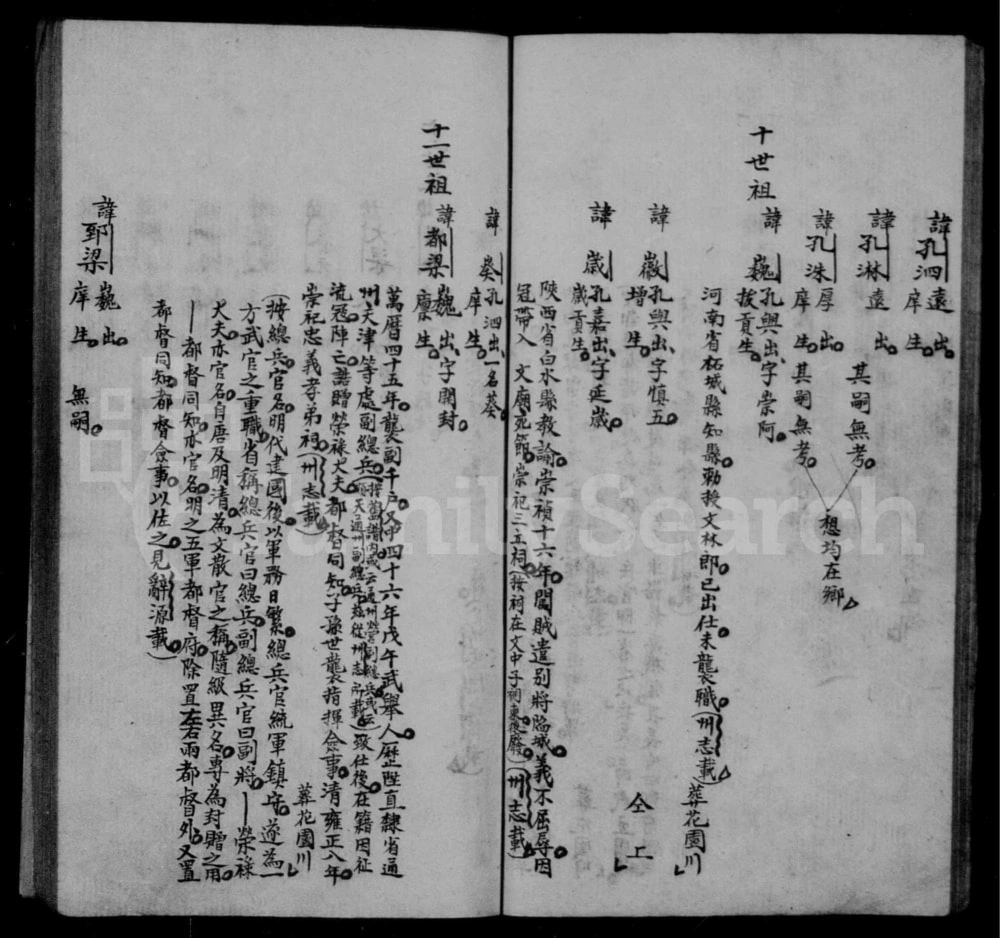 諱孔泗遠出。
庠生。
諱孔淋遠出。
其嗣無考。
諱孔洙厚出。
庠生。其嗣無考。
想均在鄉
十世祖
諱巍孔興出、字崇阿。
拔貢生。
河南省柘城縣知縣。勅授文林郎。已出仕未襲職。(州志載)
葬花園川
諱巖孔興出、字慎五。
增生。
仝上
諱歲孔嘉出、字延歲。
歲貢生。
陝西省白水縣教諭。崇禎十六年。闖賊遣別將臨城。義不屈辱。因
冠帶入 文廟死節。崇祀三立祠。(按祠在文中子祠東後廢)(州志載)
諱癸孔泗出、一名葵。
庠生。
十一世祖
諱都梁巍出、字開封。
廩生。
萬曆四十五年。襲副千戶。又中四十六年戊午武舉人。歷陞直隸省通
州天津等處副總兵。致仕後在籍。因征
流寇陣亡。誥贈榮祿大夫。都督同知。子孫世襲指揮僉事。清雍正八年
崇祀忠義孝弟祠。(州志載)
葬花園川
(按總兵。官名。明代建國後。以軍務日繁。總兵官統軍鎮守。遂為一
方武官之重職。省稱總兵官曰總兵。副總兵官曰副將。—榮祿
大夫。亦官名。自唐及明清。為文散官之稱。隨級異名。專為封贈之用。
—都督同知。亦官名。明之五軍都督府。除置左右兩都督外。又置
都督同知。都督僉事。以佐之。見辭源載。)
諱郅梁巍出。
庠生。
無嗣。
FamilySearch